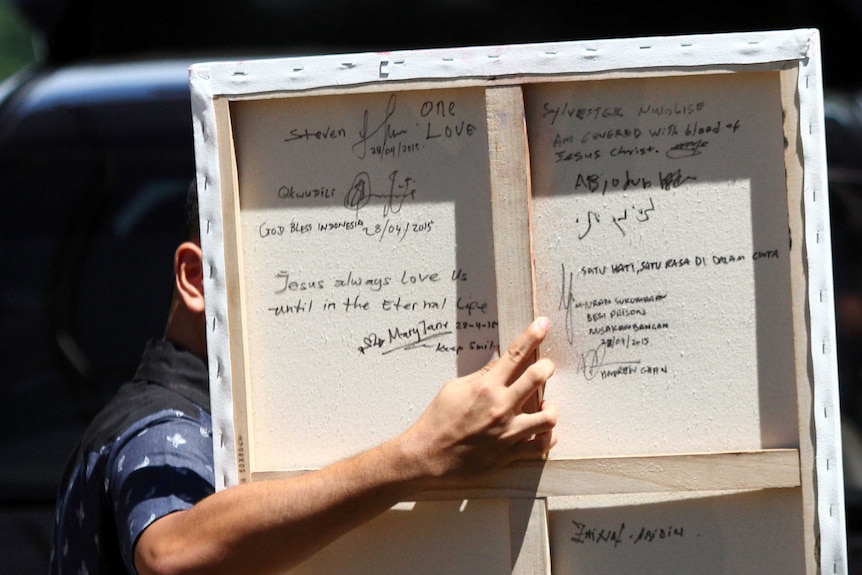 Steven
One
Love
28/04/2015.
Okwudili
God Bless Indonesia 28/04/2015
Jesus always Love Us
until in the Eternal Life
Mary Jane 28-4-20
Keep Smili
Sylvester Nwolise
Am covered with blood of
Jesus Christ.
SATU HATI, SATU RASA DI DALAM CINTA
MYURAN SUKUMARAN
BESI PRISON
NUSAKAMBANGAN
28/04/2015
ANDREW CHAN
Zainal. Abidin.